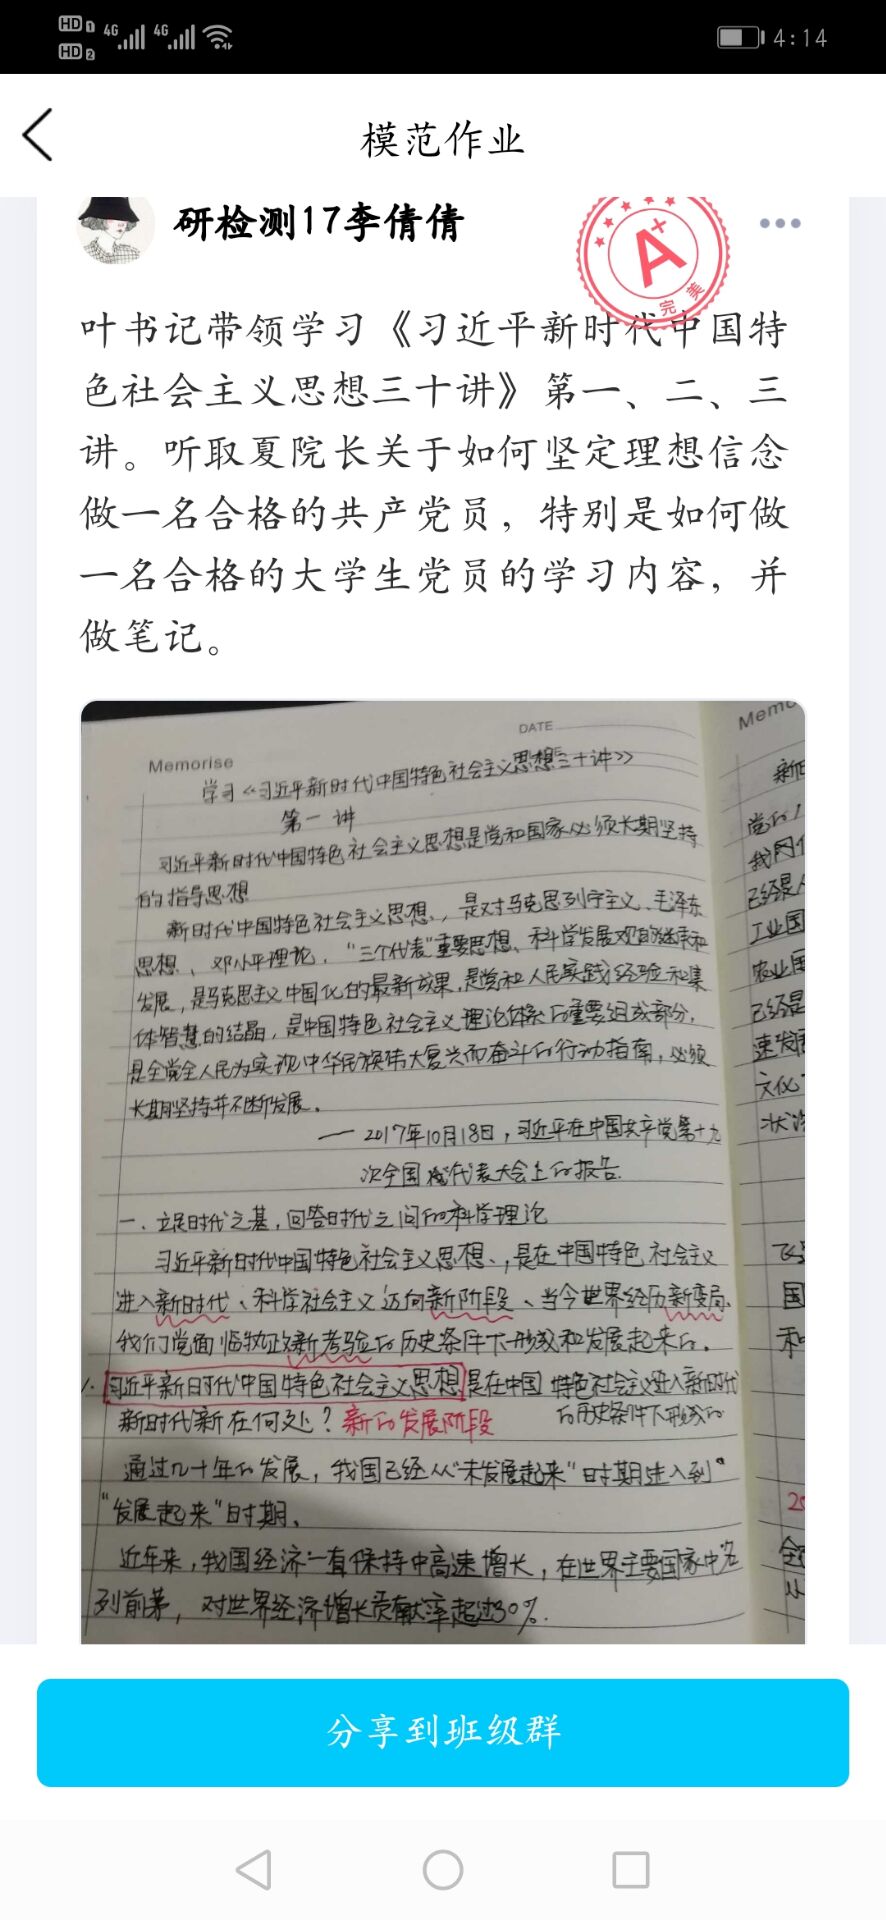 HD 1 4G 4G
HD 2
4:14
模范作业
研检测17李倩倩
A+
完美
叶书记带领学习《习近平新时代中国特
色社会主义思想三十讲》第一、二、三
讲。听取夏院长关于如何坚定理想信念
做一名合格的共产党员，特别是如何做
一名合格的大学生党员的学习内容，并
做笔记。
DATE
Memorise
学习《习近平新时代中国特色社会主义思想三十讲》
第一讲
习近平新时代中国特色社会主义思想是党和国家必须长期坚持
的指导思想
新时代中国特色社会主义思想，是对马克思列宁主义、毛泽东
思想、邓小平理论，“三个代表”重要思想、科学发展观的继承和
发展，是马克思主义中国化的最新成果，是党和人民实践经验和集
体智慧的结晶，是中国特色社会主义理论体系的重要组成部分，
是全党全人民为实现中华民族伟大复兴而奋斗的行动指南，必须
长期坚持并不断发展。
——2017年10月18日，习近平在中国共产党第十九
次全国代表大会上的报告.
一、立足时代之基，回答时代之问的科学理论
习近平新时代中国特色社会主义思想，是在中国特色社会主义
进入新时代、科学社会主义迈向新阶段、当今世界经历新变局、
我们党面临执政新考验的历史条件下形成和发展起来的。
1. 习近平新时代中国特色社会主义思想是在中国特色社会主义进入新时代
的历史条件下形成的
新时代新在何处？新的发展阶段
通过几十年的发展，我国已经从“未发展起来”时期进入到
“发展起来”时期、
近年来，我国经济一直保持中高速增长，在世界主要国家中名
列前茅，对世界经济增长贡献率超过30%.
Memo
党的
我国
已经是
工业国
农业国
已经是
速发展
文化
状
国
和
20
分享到班级群